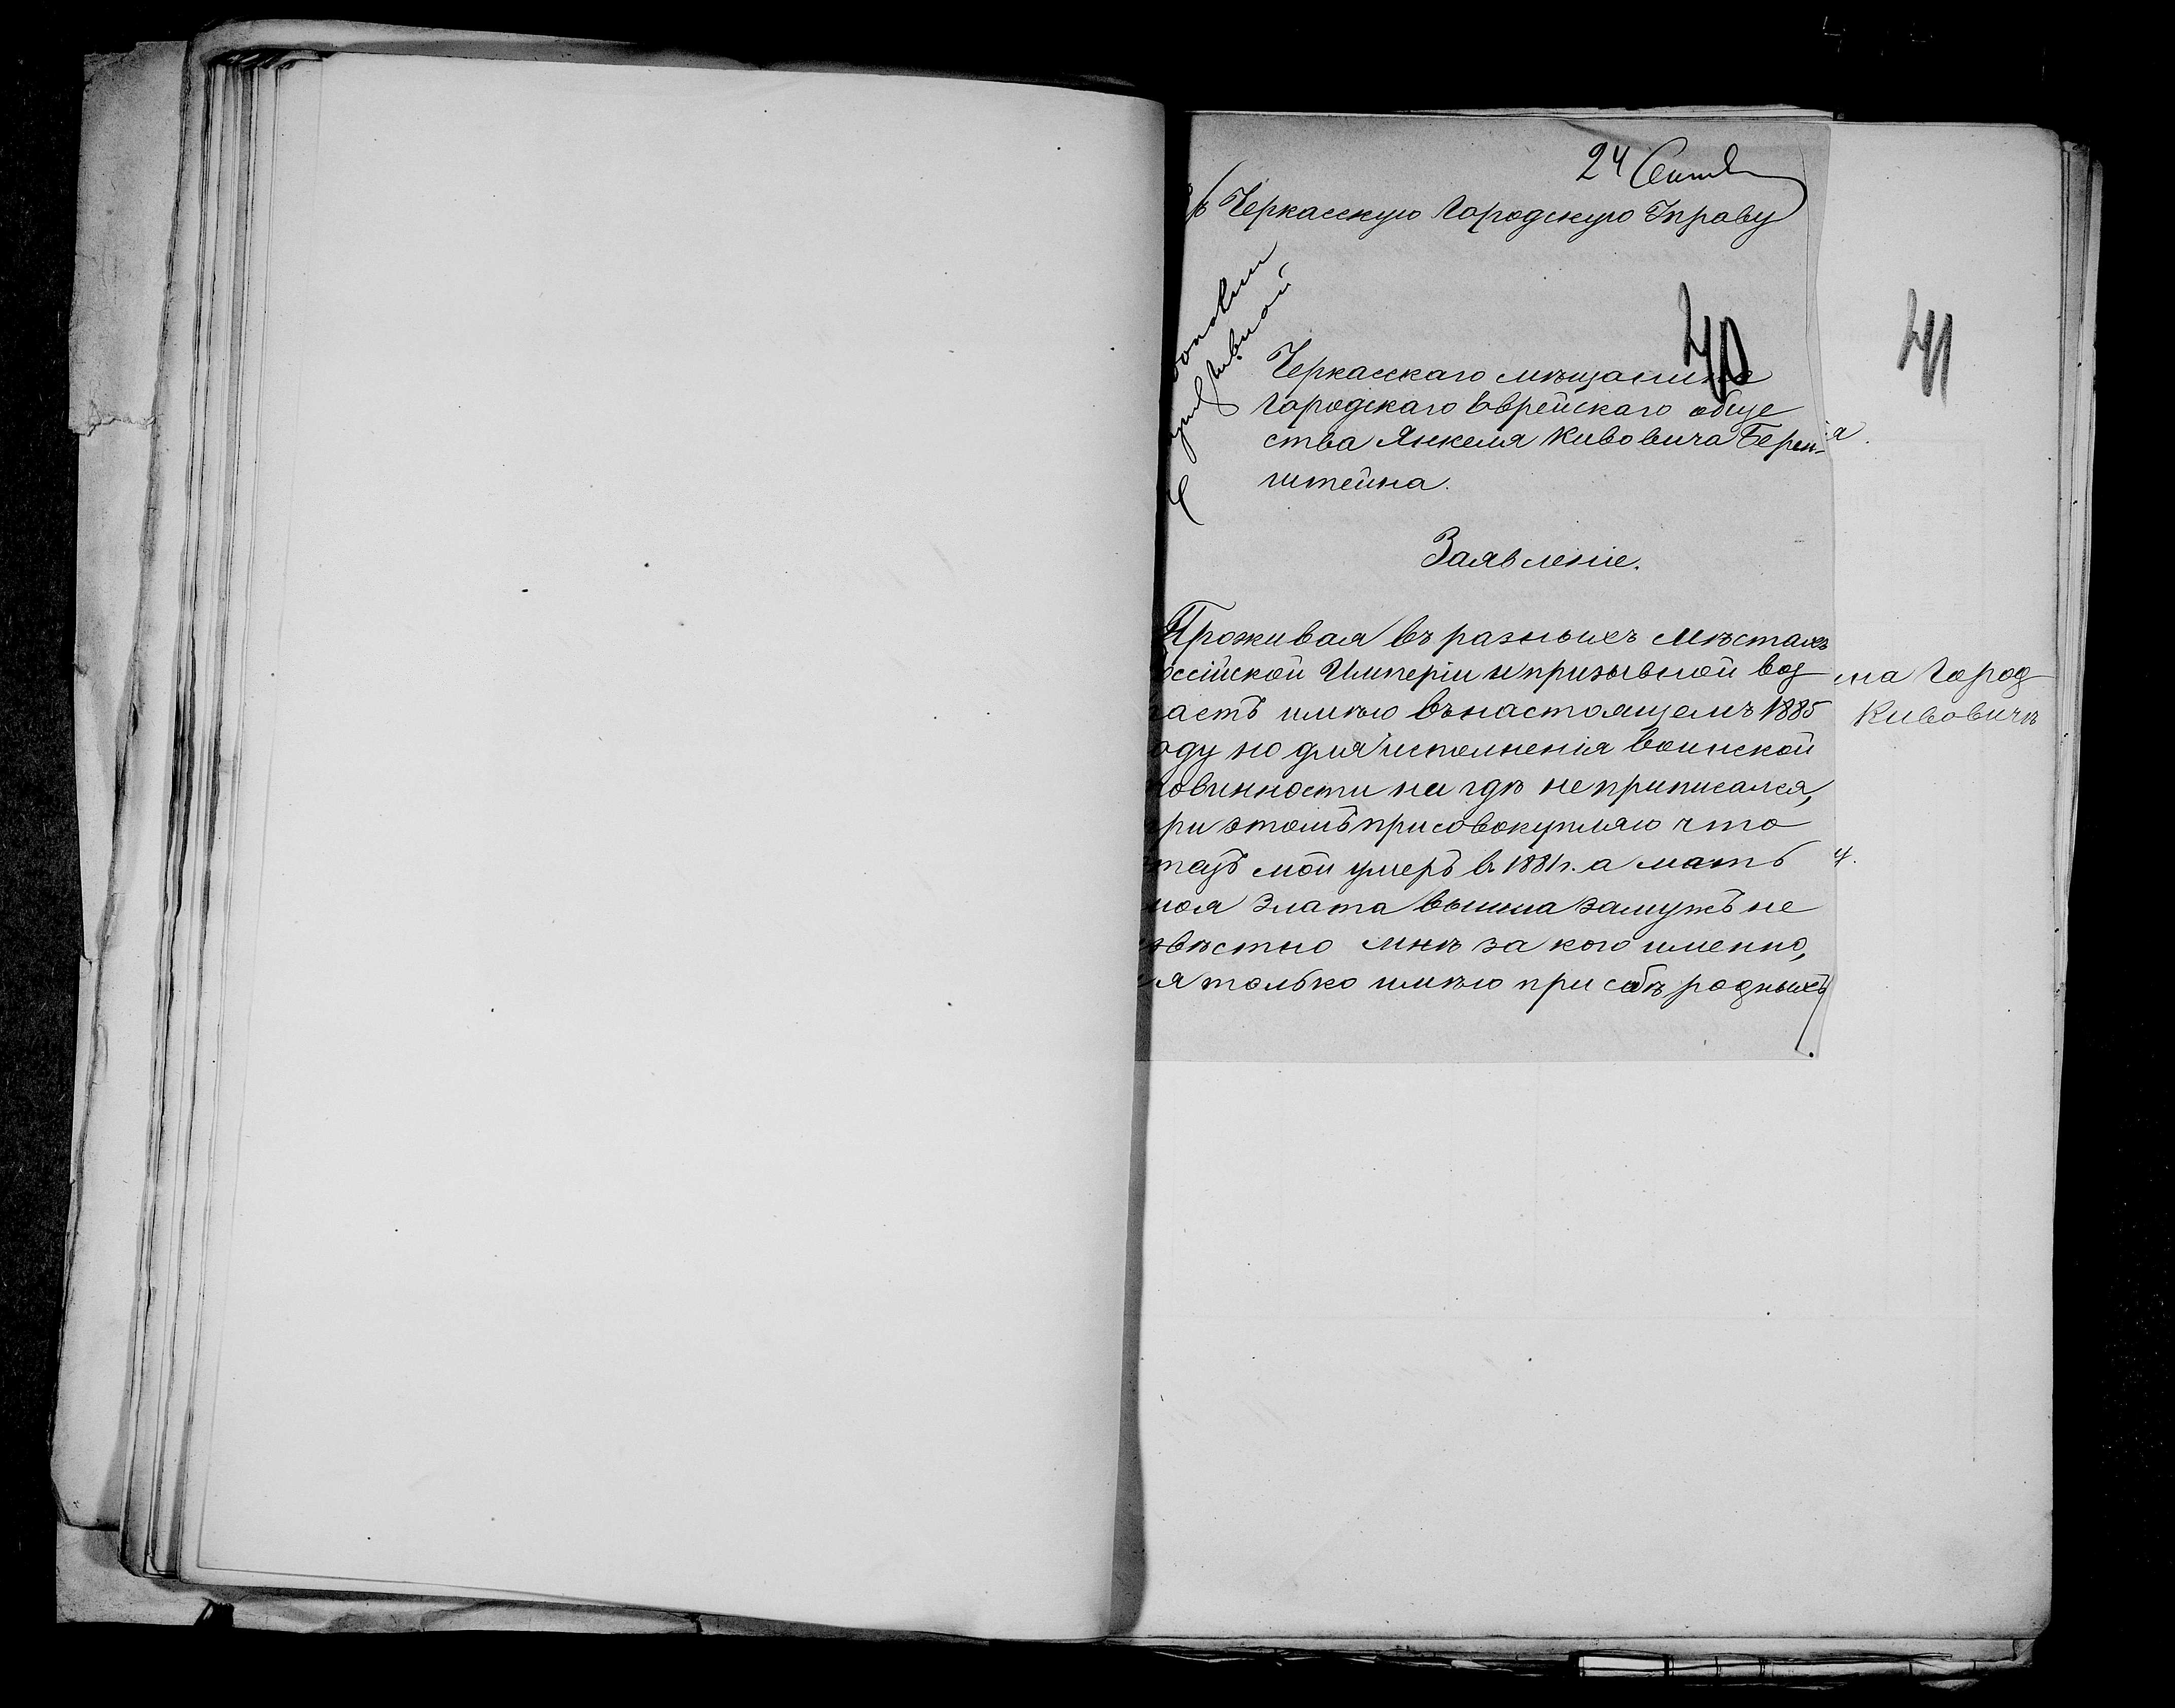 24 Сентяб
Въ Черкасскую Городскую Управу
40
41
Черкасскаго мѣщанина
Городскаго Еврейскаго обще
ства Янкеля Кивовича Берен-
штейна.
Заявленіе.
Проживая въ разныхъ мѣстахъ
оссійской Имперіи и призывной воз
растъ имѣю въ настоящемъ 1885
оду но для исполненія воинской
повинности ни гдѣ не приписался,
при этомъ присовокупляю что
отецъ мой умеръ в 1881 г. а мать
моя Злата вышла замужъ не
звѣстно мнѣ за кого именно,
я только имѣю при себѣ родныхъ
я.
на Город
Кивовичъ